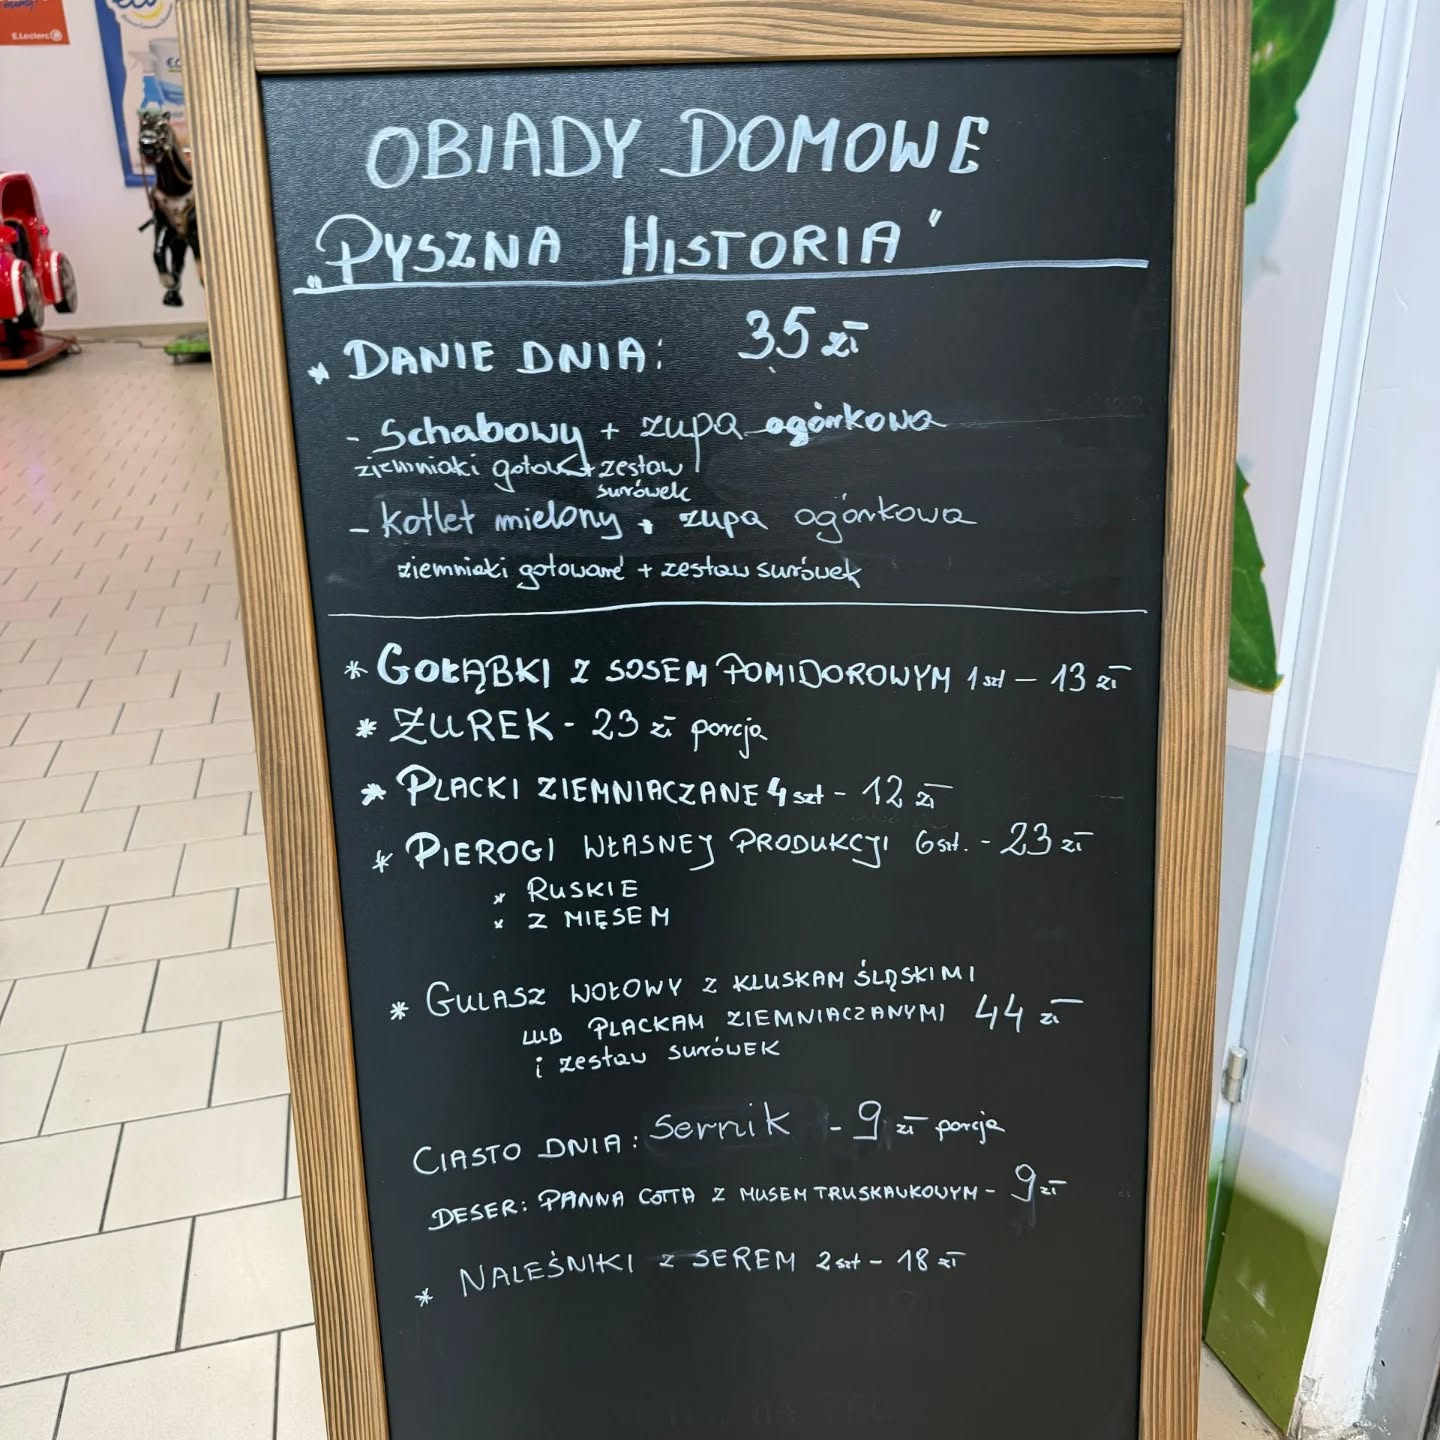 E.Leclerc
OBIADY DOMOWE
„PYSZNA HISTORIA"
* DANIE DNIA: 35 zł
- Schabowy + zupa ogórkowa
ziemniaki gotow + zestaw
surówek
- kotlet mielony + zupa ogórkowa
ziemniaki gotowane + zestaw surówek
* GOŁĄBKI Z SOSEM POMIDOROWYM 1 szt - 13 zł
* ŻUREK - 23 zł porcja
* PLACKI ZIEMNIACZANE 4 szt - 12 zł
* PIEROGI WŁASNEJ PRODUKCJI 6 szt. - 23 zł
* RUSKIE
* Z MIĘSEM
* GULASZ WOŁOWY Z KLUSKAM ŚLĄSKIMI
LUB PLACKAM ZIEMNIACZANYMI 44 zł
i zestaw surówek
CIASTO DNIA: Sernik - 9 zł porcja
DESER: PANNA COTTA Z MUSEM TRUSKAWKOWYM - 9 zł
* NALEŚNIKI Z SEREM 2 szt - 18 zł